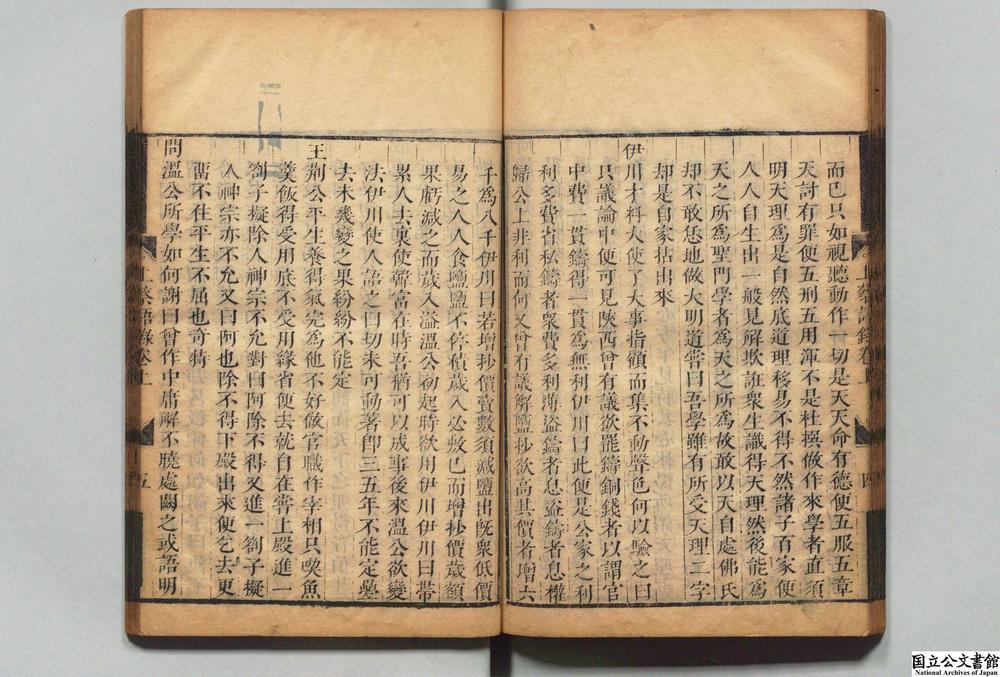 而已只如視聽動作一切是天天命有德便五服五章
天討有罪便五刑五用渾不是杜撰做作來學者直須
明天理爲是自然底道理移易不得不然諸子百家便
人人自生出一般見解欺誑衆生識得天理然後能爲
天之所爲聖門學者爲天之所爲故敢以天自處佛氏
却不敢恁地做大明道嘗曰吾學雖有所受天理二字
却是自家拈出來
伊川才料大使了大事指顧而集不動聲色何以驗之曰
只議論中便可見陝西曾有議欲罷鑄銅錢者以謂官
中費一貫鑄得一貫爲無利伊川曰此便是公家之利
利多費省私鑄者衆費多利薄盜鑄者息盜鑄者息權
歸公上非利而何又曾有議解鹽抄欲高其價者增六
千爲八千伊川曰若增抄價賣數須減鹽出旣衆低價
易之人人食鹽鹽不停積歲入必敷已而增抄價歲額
果虧減之而歲入溢溫公初起時欲用伊川伊川曰帶
累人去裏使韓富在時吾猶可以成事後來溫公欲變
法伊川使人語之曰切未可動著卽三五年不能定疊
去未幾變之果紛紛不能定
王荆公平生養得氣完爲他不好做官職作宰相只喫魚
羹飯得受用底不受用緣省便去就自在嘗上殿進一
劄子擬除人神宗不允對曰阿除不得又進一劄子擬
人神宗亦不允又曰阿也除不得下殿出來便乞去更
畱不住平生不屈也奇特
問溫公所學如何謝曰曾作中庸解不曉處闕之或語明
上蔡語錄卷上
四
上蔡語錄卷上
五
国立公文書館
National Archives of Japan